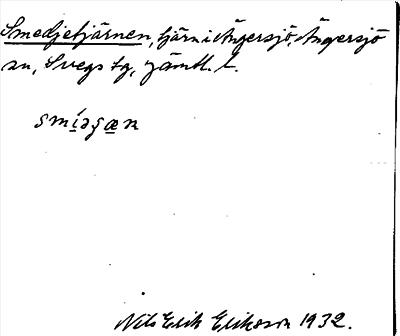 Smedjetjärnen, tjärn i Ängersjö, Ängersjö
sn, Svegs tg, Jämtl. l.
Nils Erik Eliksson 1932.